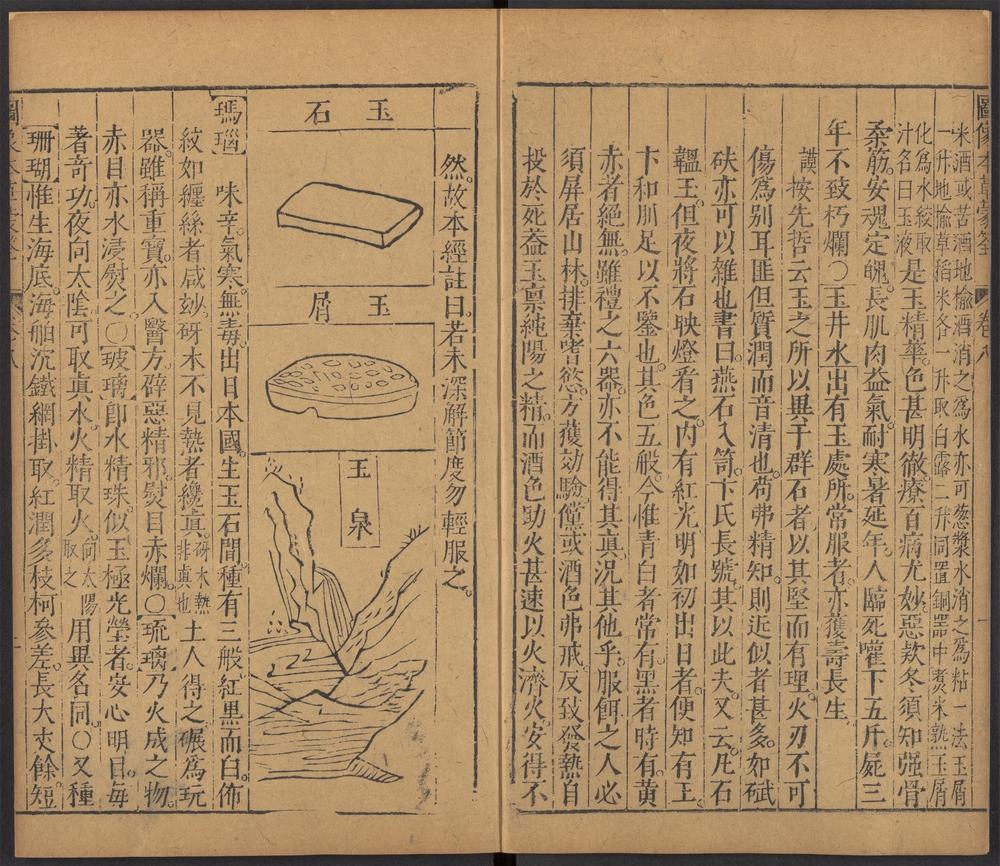 圖像本草蒙筌 卷八 一
米酒或苦酒地榆酒消之爲水亦可葱漿水消之爲粘一法玉屑
一升地榆草稻米各一升取白露二升同置銅器中煑米熟玉屑
化爲水絞取
汁名曰玉液是玉精華色甚明徹療百病尤妙惡欬冬須知强骨
柔筋安魂定魄長肌肉益氣耐寒暑延年人臨死嚾下五斤屍三
年不致朽爛○玉井水出有玉處所常服者亦獲壽長生
謨按先哲云玉之所以異于群石者以其堅而有理火刃不可
傷爲別耳匪但質潤而音清也苟弗精知則近似者甚多如碔
砆亦可以雜也書曰燕石入笥卞氏長號其以此夫又云凡石
韞玉但夜將石映燈看之内有紅光明如初出日者便知有玉
卞和刖足以不鑒也其色五般今惟青白者常有黑者時有黄
赤者絕無雖禮之六器亦不能得其真況其他乎服餌之人必
須屏居山林排棄嗜慾方獲効驗僅或酒色弗戒反致發熱自
投於死葢玉禀純陽之精而酒色助火甚速以火濟火安得不
然故本經註曰若未深解節度勿輕服之
玉石
玉屑
玉泉
瑪瑙 味辛氣寒無毒出日本國生玉石間種有三般紅黑而白佈
紋如纏絲者咸妙硏木不見熱者纔真硏木熱
非真也土人得之碾爲玩
器雖稱重寶亦入醫方辟惡精邪熨目赤爛○琉璃乃火成之物
赤目亦水浸熨之○玻瓈卽水精珠似玉極光瑩者安心明目每
著奇功夜向太陰可取眞水火精取火向太陽
取之用異名同○又種
珊瑚惟生海底海舶沉鐵網掛取紅潤多枝柯參差長大丈餘短